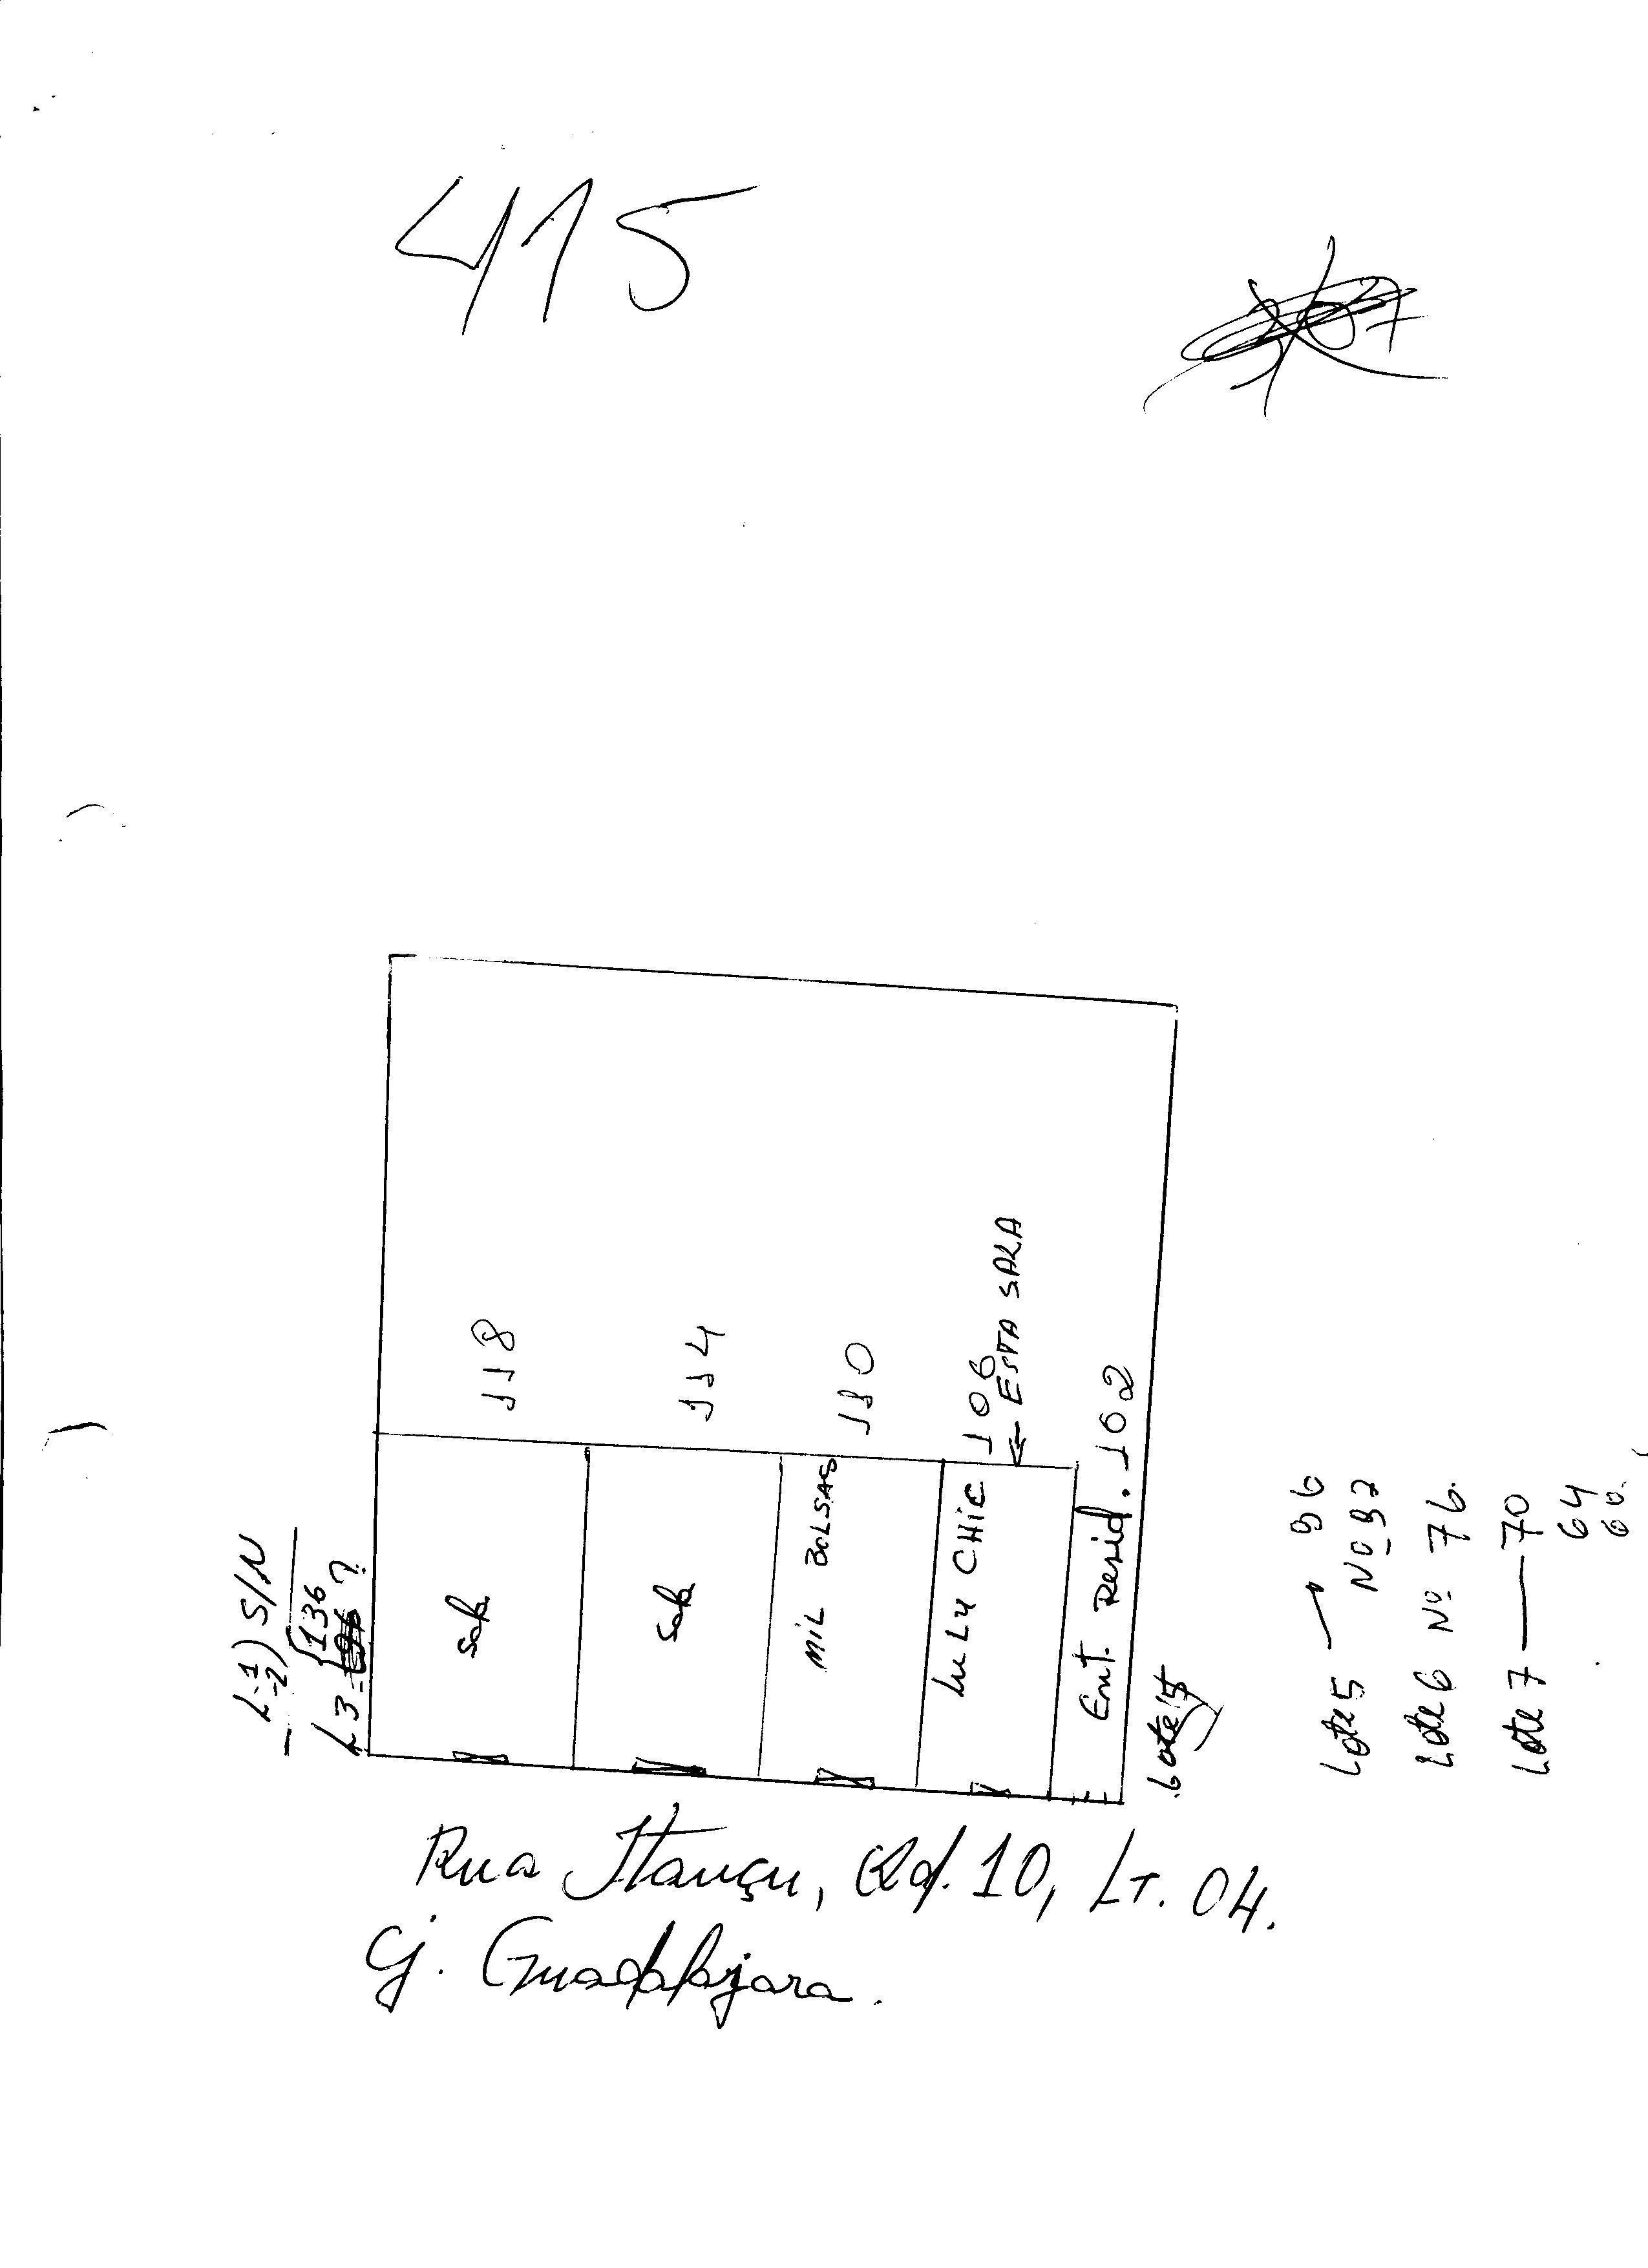 415
L-1) S/N
-2)
136
L3 - ?
118
114
110
106
← ESTA SALA
102
Sala
Sala
MIL BOLSAS
LULY CHIC
Ent. Resid.
Lote 5 → 96
Nº 92
Lote 6 Nº 76.
Lote 7 — 70
64
60.
Rua Itauçu, Qd. 10, LT. 04.
Cj. Guadalajara.